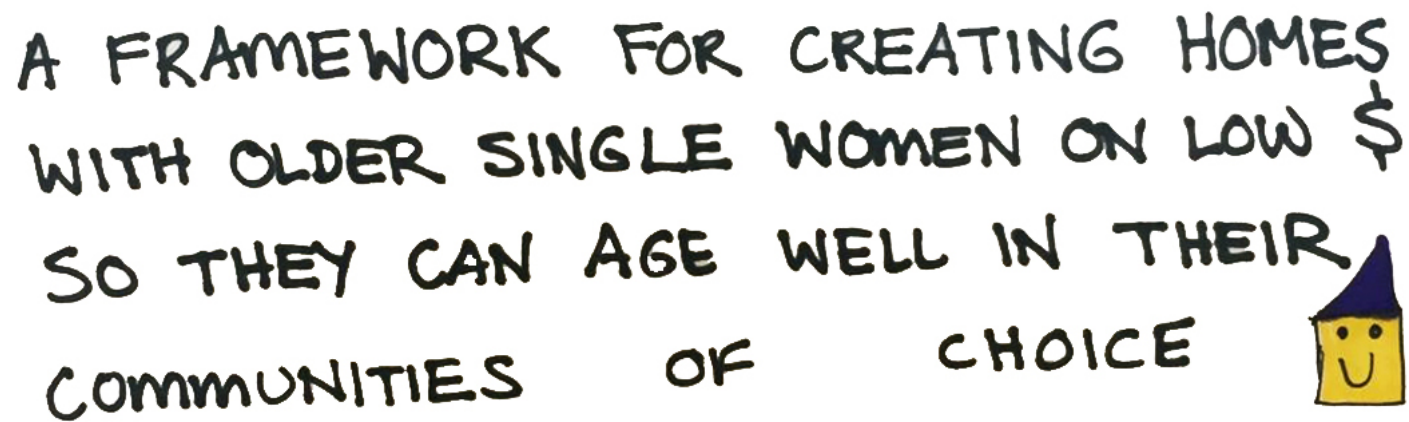 A FRAMEWORK FOR CREATING HOMES
WITH OLDER SINGLE WOMEN ON LOW $
SO THEY CAN AGE WELL IN THEIR
COMMUNITIES OF CHOICE